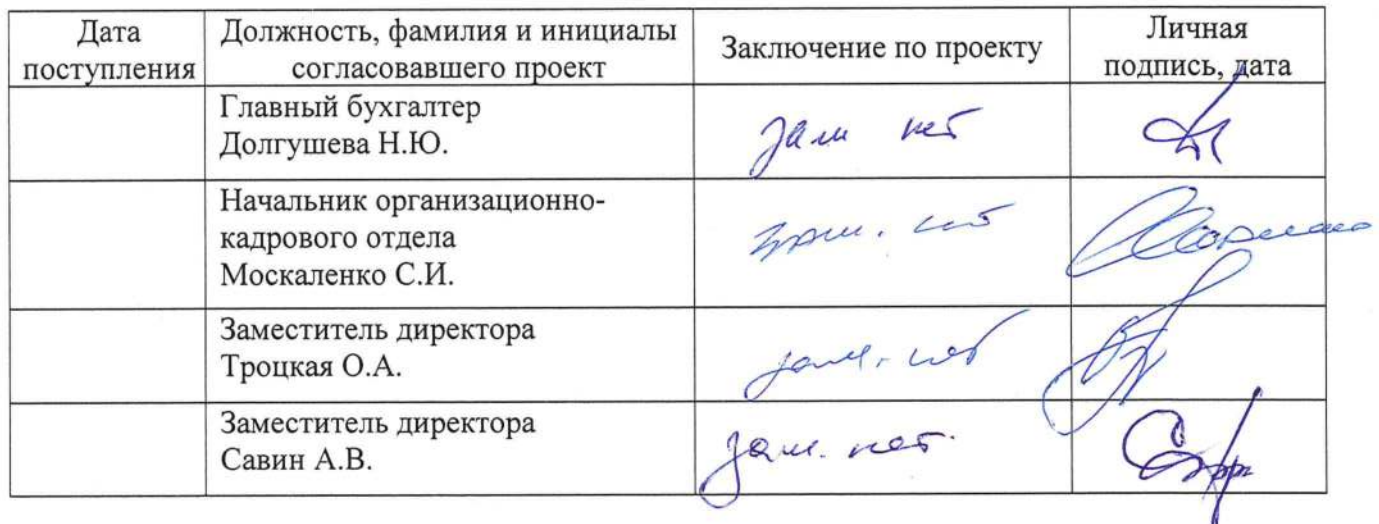 Дата поступления
Должность, фамилия и инициалы согласовавшего проект
Заключение по проекту
Личная подпись, дата
Главный бухгалтер
Долгушева Н.Ю.
зам нет
Начальник организационно-
кадрового отдела
Москаленко С.И.
зам. нет
Заместитель директора
Троцкая О.А.
зам. нет
Заместитель директора
Савин А.В.
зам. нет.